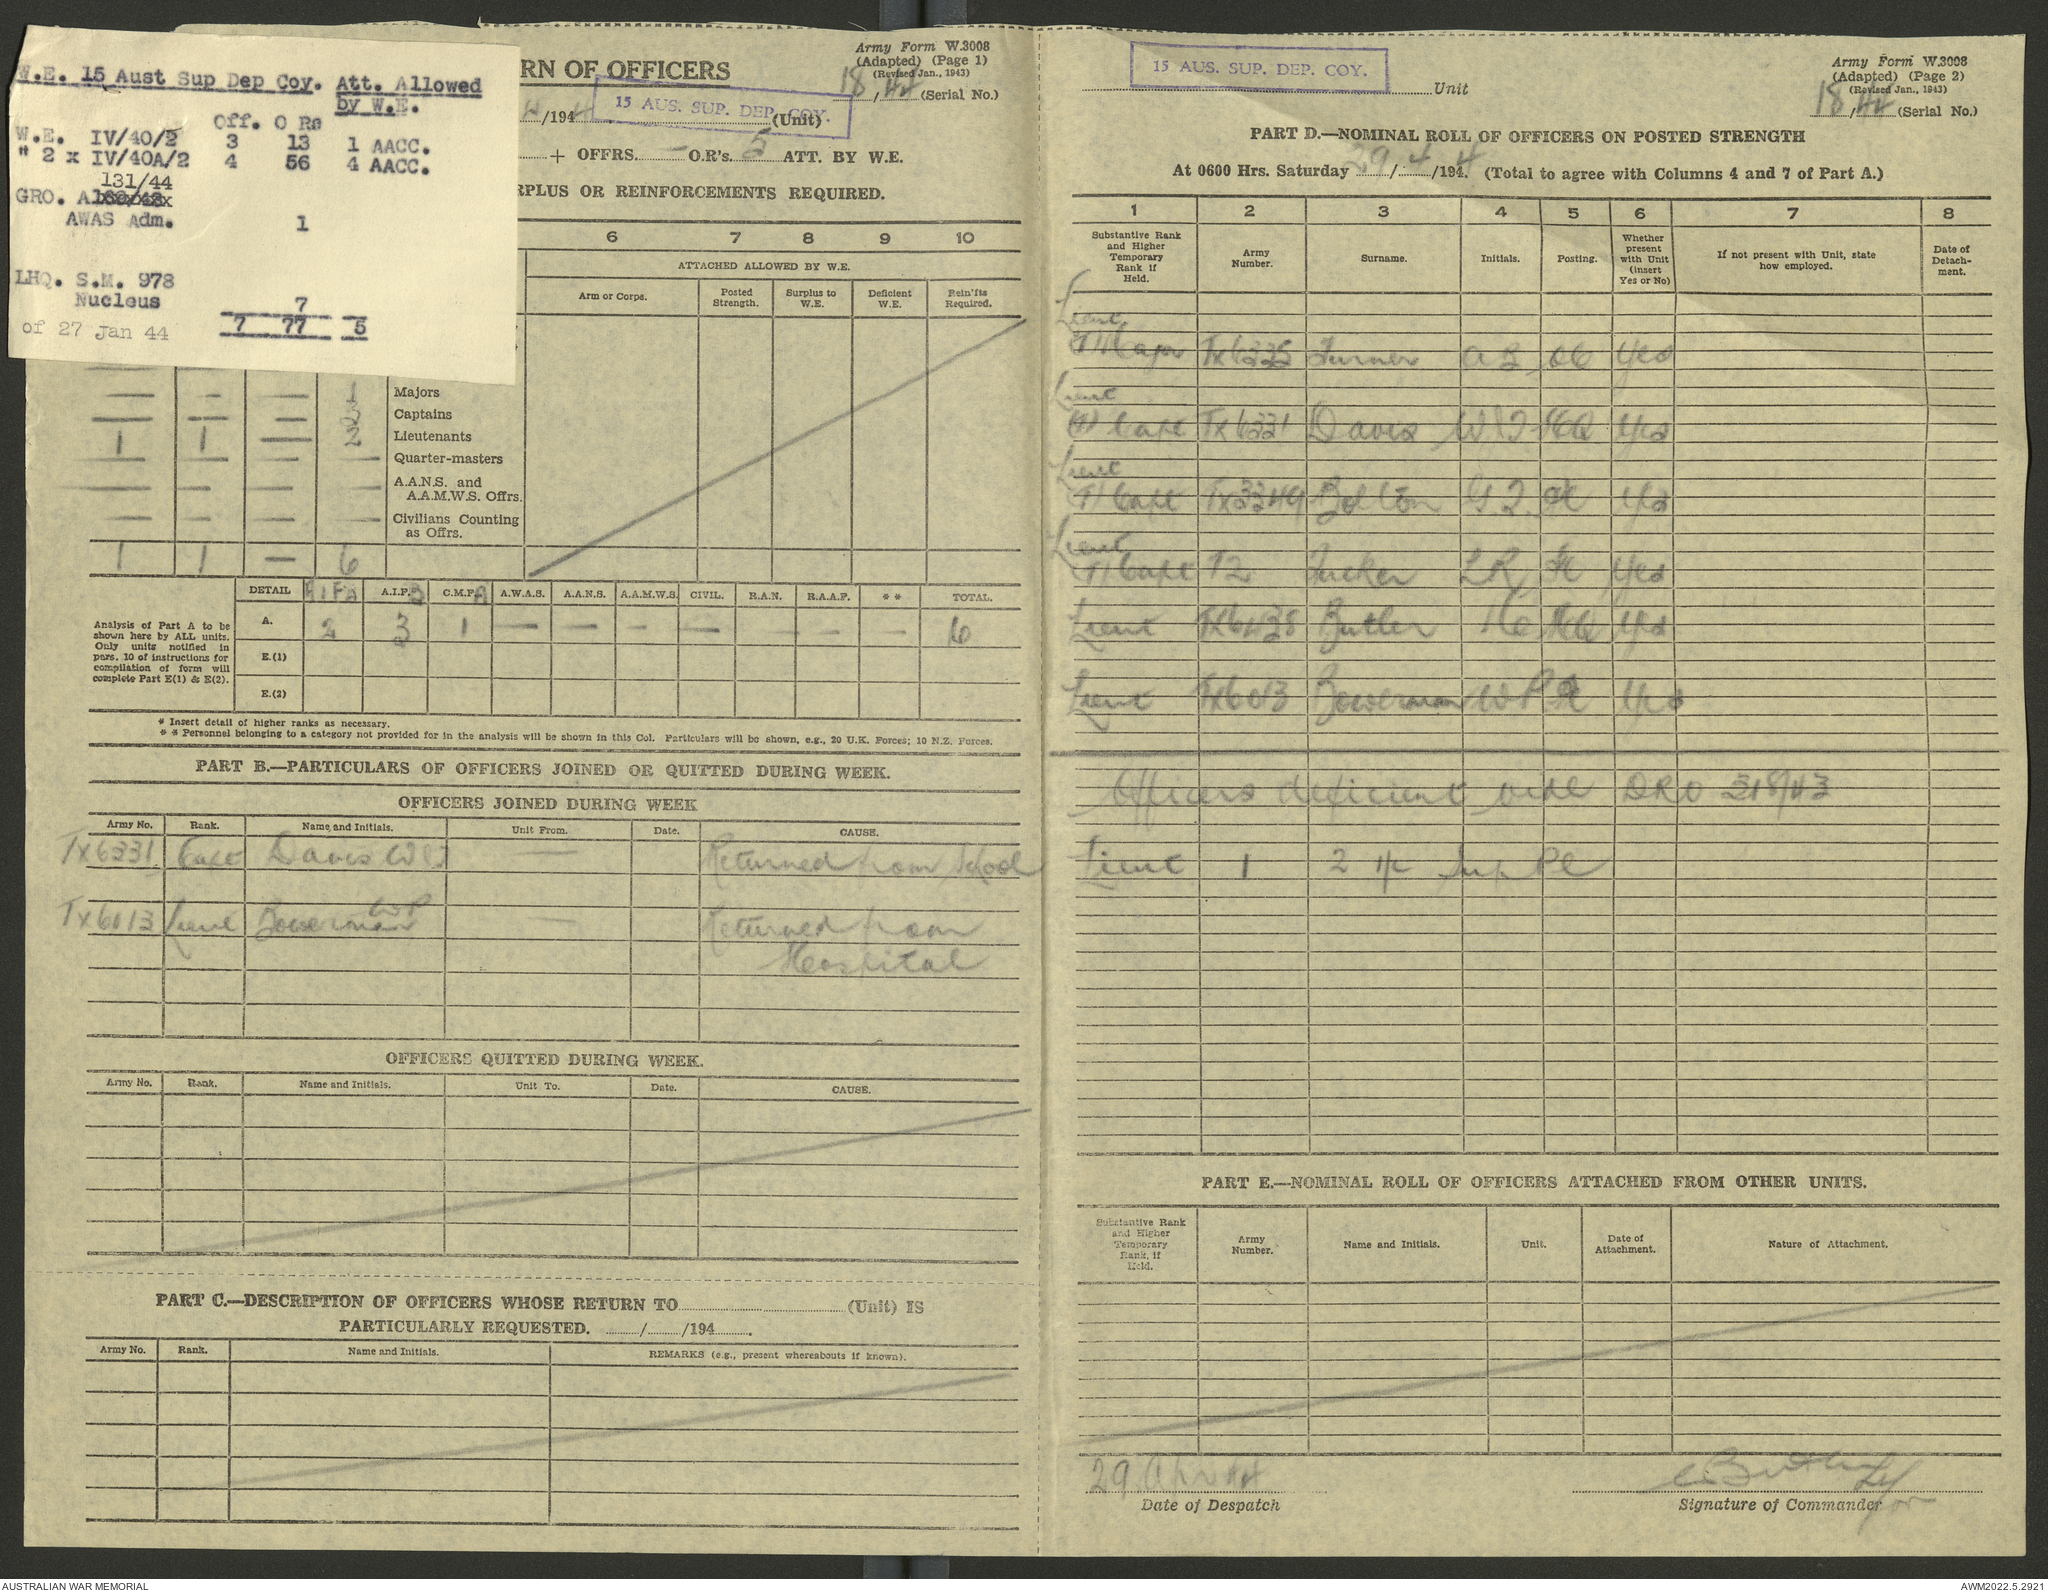 W.E. 15 Aust Sup Dep Coy. Att. Allowed
by W.E.
Off. O Rs
W.E. IV/40/2 3 13 1 AACC.
" 2 x IV/40A/2 4 56 4 AACC.
131/44
GRO. A
AWAS Adm. 1
LHQ. S.M. 978
Nucleus 7
of 27 Jan 44 7 77 5
RN OF OFFICERS
Army Form W.3008
(Adapted) (Page 1)
(Revised Jan., 1943)
18/44 (Serial No.)
4/1944 15 AUS. SUP. DEP. COY. (Unit)
+ OFFRS. — O.R's. 5 ATT. BY W.E.
RPLUS OR REINFORCEMENTS REQUIRED.
6 7 8 9 10
ATTACHED ALLOWED BY W.E.
Arm or Corps. Posted Strength. Surplus to W.E. Deficient W.E. Rein'fts Required.
— — — 1 Majors
— — — 3 Captains
1 1 — 2 Lieutenants
— — — — Quarter-masters
— — — — A.A.N.S. and
A.A.M.W.S. Offrs.
— — — — Civilians Counting
as Offrs.
1 1 — 6
DETAIL A.I.F.A A.I.F.B C.M.F.A A.W.A.S. A.A.N.S. A.A.M.W.S. CIVIL. R.A.N. R.A.A.F. * * TOTAL.
Analysis of Part A to be
shown here by ALL units.
Only units notified in
pars. 10 of instructions for
compilation of form will
complete Part E(1) & E(2).
A. 2 3 1 — — — — — — — 6
E.(1)
E.(2)
* Insert detail of higher ranks as necessary.
* * Personnel belonging to a category not provided for in the analysis will be shown in this Col. Particulars will be shown, e.g., 20 U.K. Forces; 10 N.Z. Forces.
PART B.—PARTICULARS OF OFFICERS JOINED OR QUITTED DURING WEEK.
OFFICERS JOINED DURING WEEK
Army No. Rank. Name and Initials. Unit From. Date. CAUSE.
Tx6331 Capt Davis W — Returned from School
Tx6013 Lieut Bowerman WP — Returned from
Hospital
OFFICERS QUITTED DURING WEEK.
Army No. Rank. Name and Initials. Unit To. Date. CAUSE.
PART C.—DESCRIPTION OF OFFICERS WHOSE RETURN TO (Unit) IS
PARTICULARLY REQUESTED. / /194 .
Army No. Rank. Name and Initials. REMARKS (e.g., present whereabouts if known).
15 AUS. SUP. DEP. COY. Unit
Army Form W.3008
(Adapted) (Page 2)
(Revised Jan., 1943)
18/44 (Serial No.)
PART D.—NOMINAL ROLL OF OFFICERS ON POSTED STRENGTH
At 0600 Hrs. Saturday 29/4/1944. (Total to agree with Columns 4 and 7 of Part A.)
1 2 3 4 5 6 7 8
Substantive Rank and Higher Temporary Rank if Held. Army Number. Surname. Initials. Posting. Whether present with Unit (insert Yes or No) If not present with Unit, state how employed. Date of Detach-ment.
Lieut
T/Major Tx6335 Turner OC Yes
Lieut
T/Capt Tx6331 Davis HQ Yes
Lieut
T/Capt Tx3349 Bolton Yes
Lieut
T/Capt T2 Tucker LR Yes
Lieut Tx6438 Butler HQ Yes
Lieut Tx6013 Bowerman WP Yes
Officers deficient vide DRO 318/43
Lieut 1 Sup Pl
PART E.—NOMINAL ROLL OF OFFICERS ATTACHED FROM OTHER UNITS.
Substantive Rank and Higher Temporary Rank, if Held. Army Number. Name and Initials. Unit. Date of Attachment. Nature of Attachment.
29 Apr 44
Date of Despatch
Butler Lt
for
Signature of Commander
AUSTRALIAN WAR MEMORIAL
AWM2022.5.2921